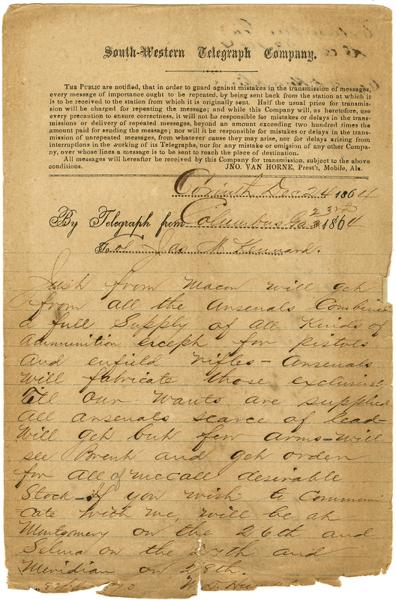 South-Western Telegraph Company.
THE PUBLIC are notified, that in order to guard against mistakes in the transmission of messages,
every message of importance ought to be repeated, by being sent back from the station at which it
is to be received to the station from which it is originally sent. Half the usual price for transmis-
sion will be charged for repeating the message; and while this Company will, as heretofore, use
every precaution to ensure correctness, it will not be responsible for mistakes or delays in the trans-
mission or delivery of repeated messages, beyond an amount exceeding two hundred times the
amount paid for sending the message; nor will it be responsible for mistakes or delays in the trans-
mission of unrepeated messages, from whatever cause they may arise, nor for delays arising from
interruptions in the working of its Telegraphs, nor for any mistake or omission of any other Compa-
ny, over whose lines a message is to be sent to reach the place of destination.
All messages will hereafter be received by this Company for transmission, subject to the above
conditions. JNO. VAN HORNE, Pres't, Mobile, Ala.
Corinth Dec 24 1864
By Telegraph from Columbus Ga 23rd 1864
To Jas M
Just from Macon will get
from all the arsenals Combine
a full Supply of all Kinds of
ammunition except for pistols
and enfield rifles - Arsenals
will fabricate those exclusive
till our wants are supplied
all arsenals scarce of lead -
Will get but few arms - will
see Brent and get order
for all of McCall desirable
Stock - If you wish to Communi
cate with me, will be at
Montgomery on the 26th and
Selma on the 27th and
Meridian on 28th.